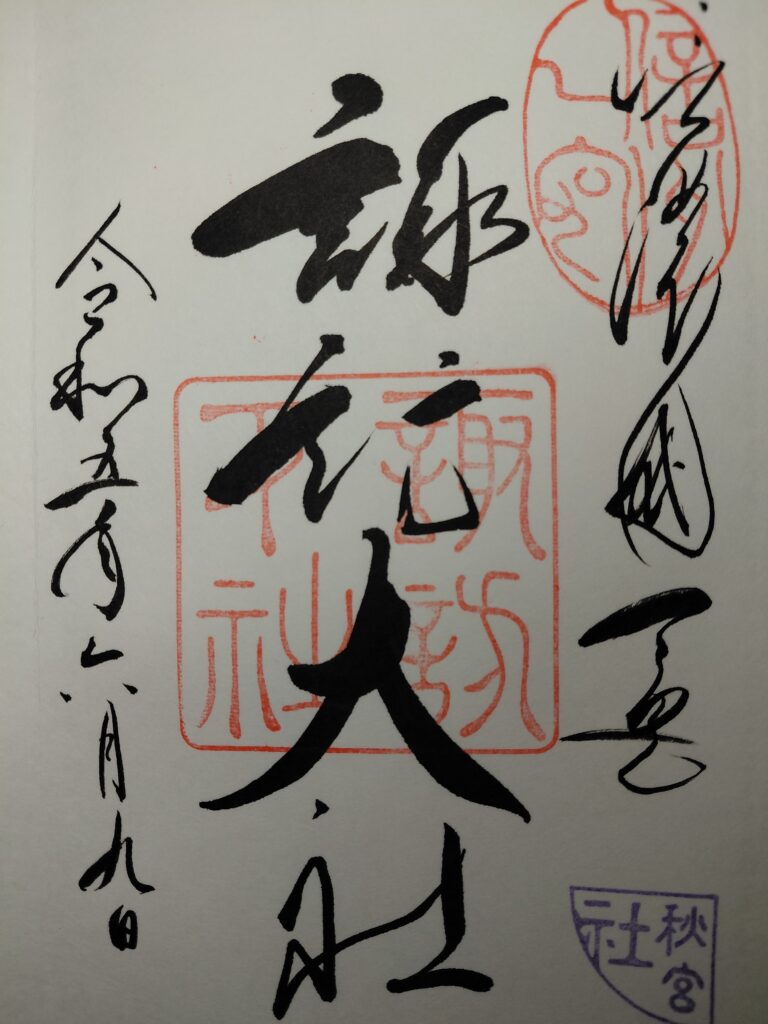 信濃國一宮
諏訪大社
諏訪
下社
令和五年六月九日
秋宮
社